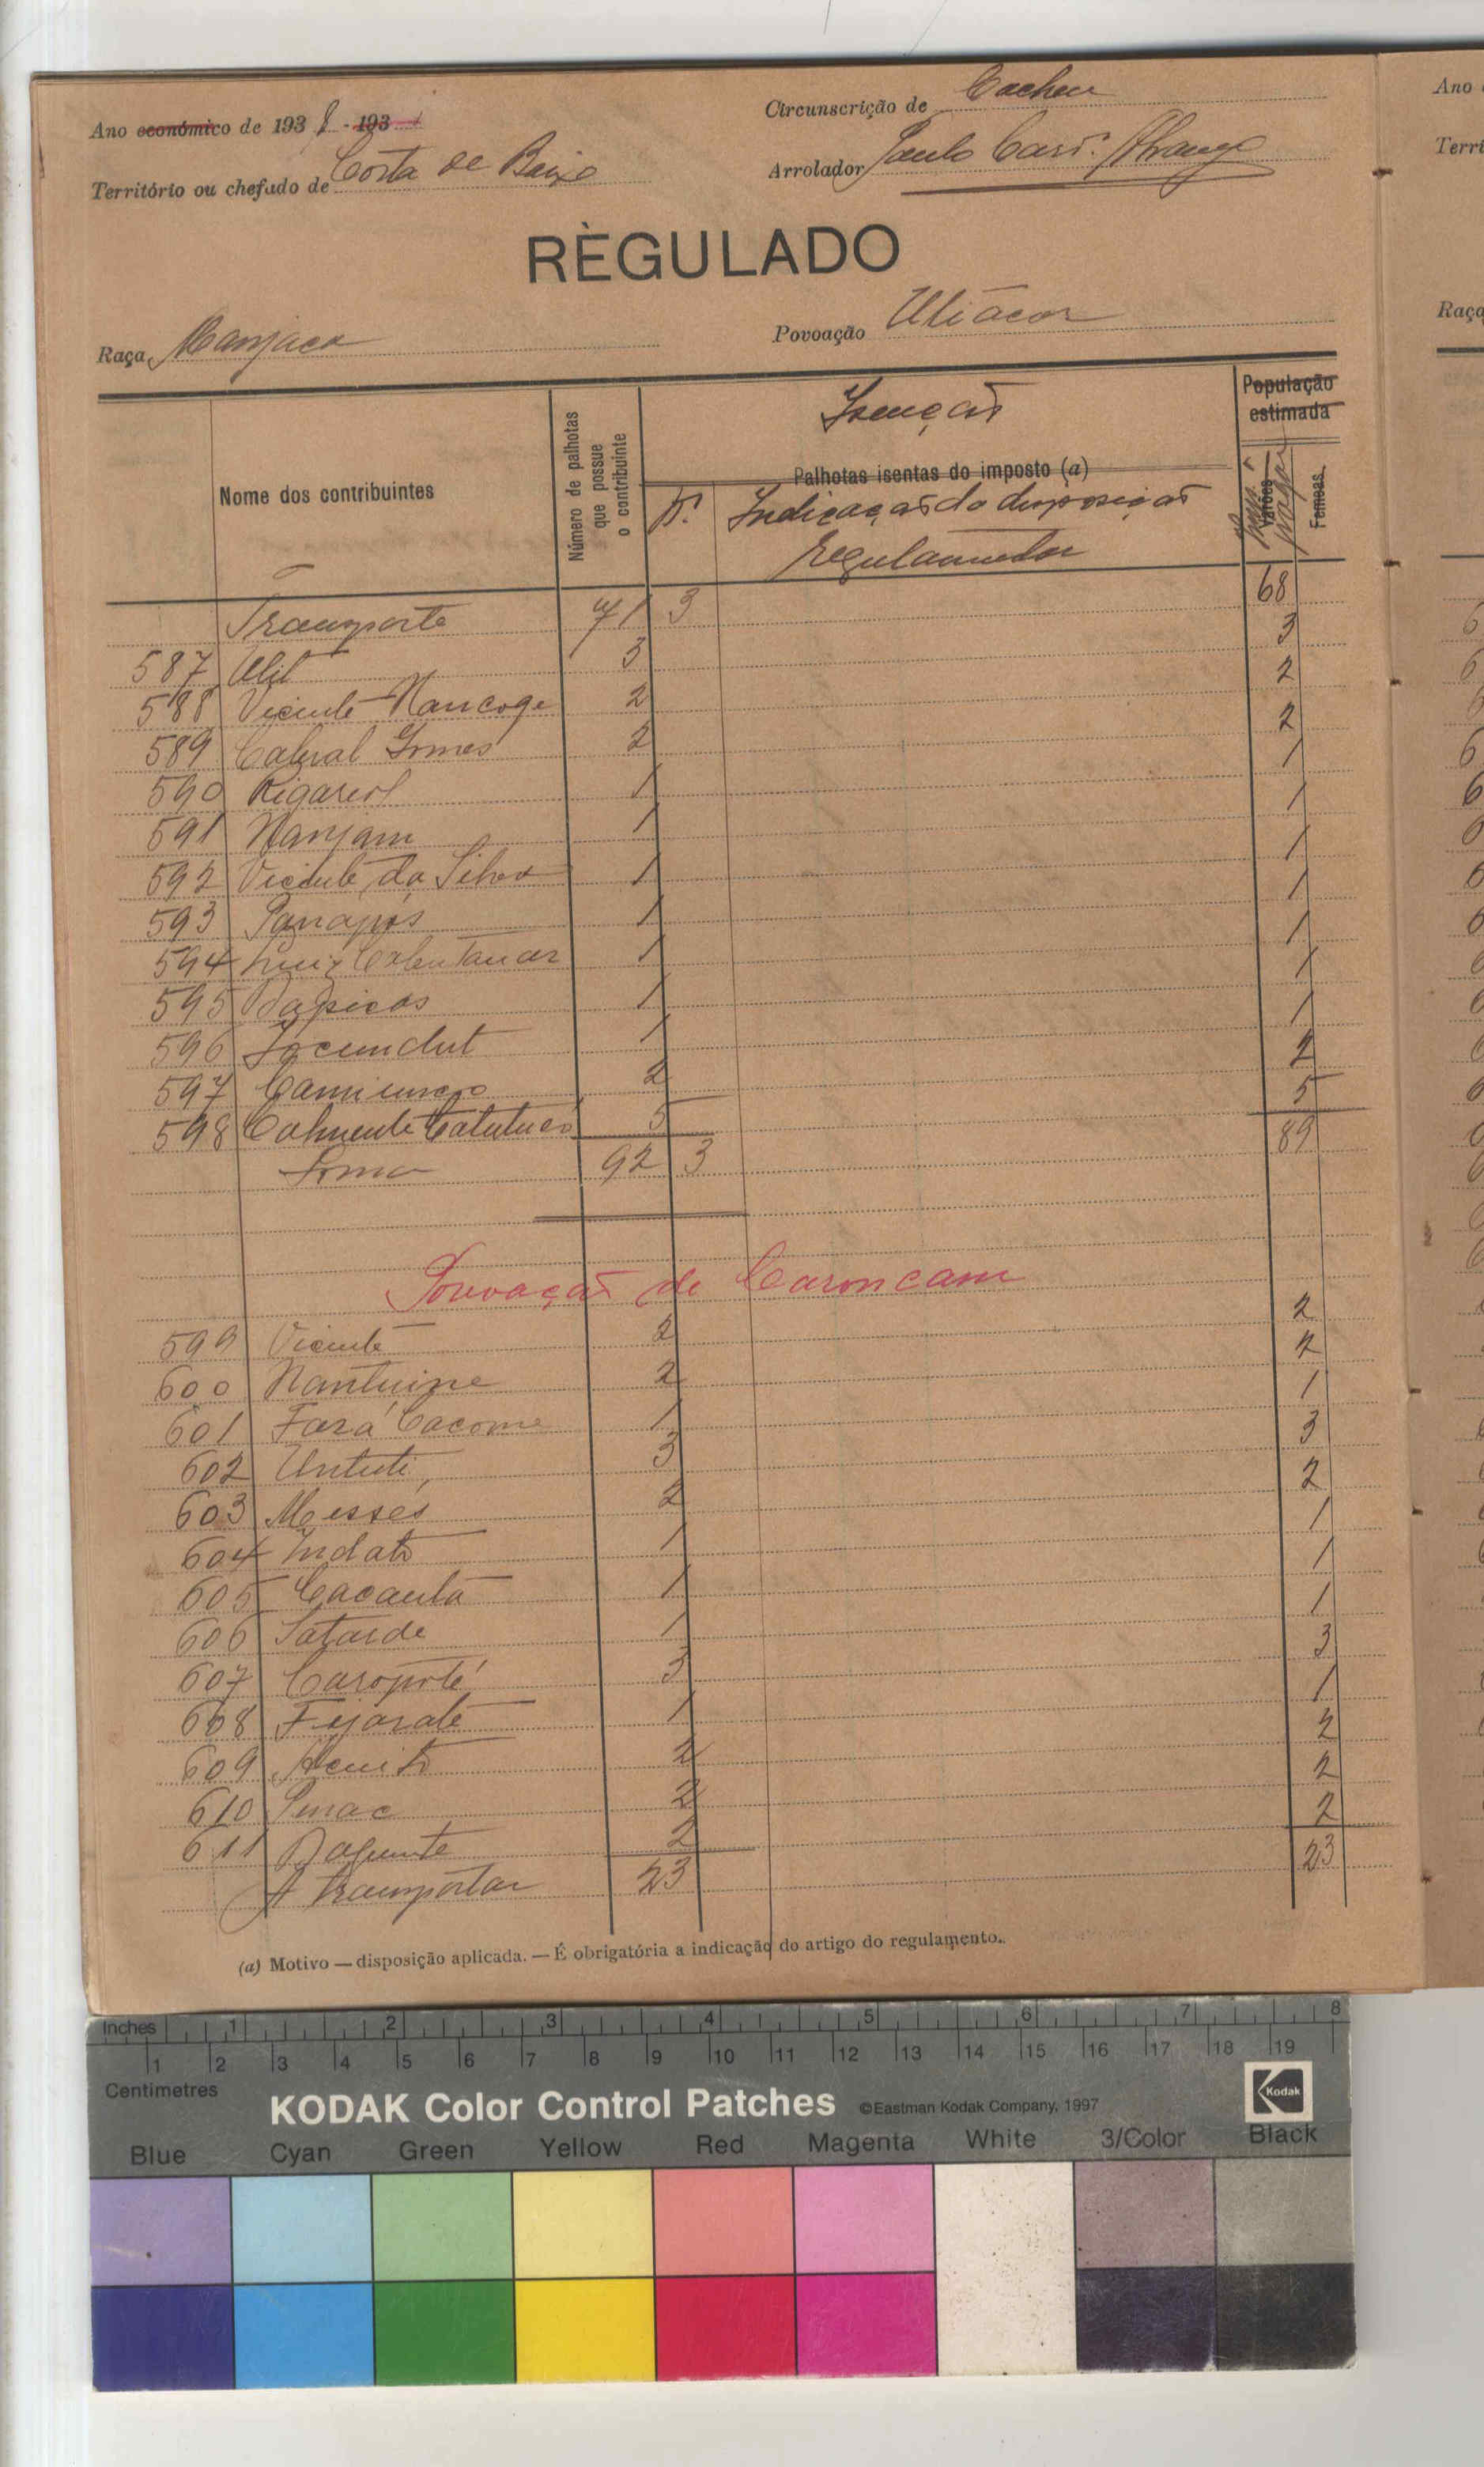 Ano económico de 1938 - 193
Circunscrição de Cacheu
Território ou chefado de Costa de Baixo
Arrolador Paulo
RÈGULADO
Raça Manjaca
Povoação Utiacor
Nome dos contribuintes
Número de palhotas que possue o contribuinte
Isenção
Palhotas isentas do imposto (a)
N.º Indicação da disposição regulamentar
População estimada
Varões
Femeas
a pagar
Transporte 71 3 68
587 Ulit 3 3
588 Vicente Nancoge 2 2
589 Cabral Gomes 2 2
590 Rigareol 1 1
591 Nanjam 1 1
592 Vicente da Silva 1 1
593 Panapós 1 1
594 Luiz 1 1
595 Dapicas 1 1
596 Jocundut 1 1
597 2 2
598 5 5
Soma 92 3 89
Povoação de Caroncam
599 Vicente 2 2
600 Nantuine 2 2
601 Fará Cacome 1 1
602 Untuti 3 3
603 Messés 2 2
604 Indato 1 1
605 Cacanta 1 1
606 Satarde 1 1
607 Caropoté 3 3
608 Fejaraté 1 1
609 2 2
610 Pinac 2 2
611 Dafunte 2 2
A transportar 23 23
(a) Motivo — disposição aplicada. — É obrigatória a indicação do artigo do regulamento.
Ano
Terri
Raça
Inches 1 2 3 4 5 6 7 8
1 2 3 4 5 6 7 8 9 10 11 12 13 14 15 16 17 18 19
Centimetres
KODAK Color Control Patches ©Eastman Kodak Company, 1997 Kodak
Blue Cyan Green Yellow Red Magenta White 3/Color Black